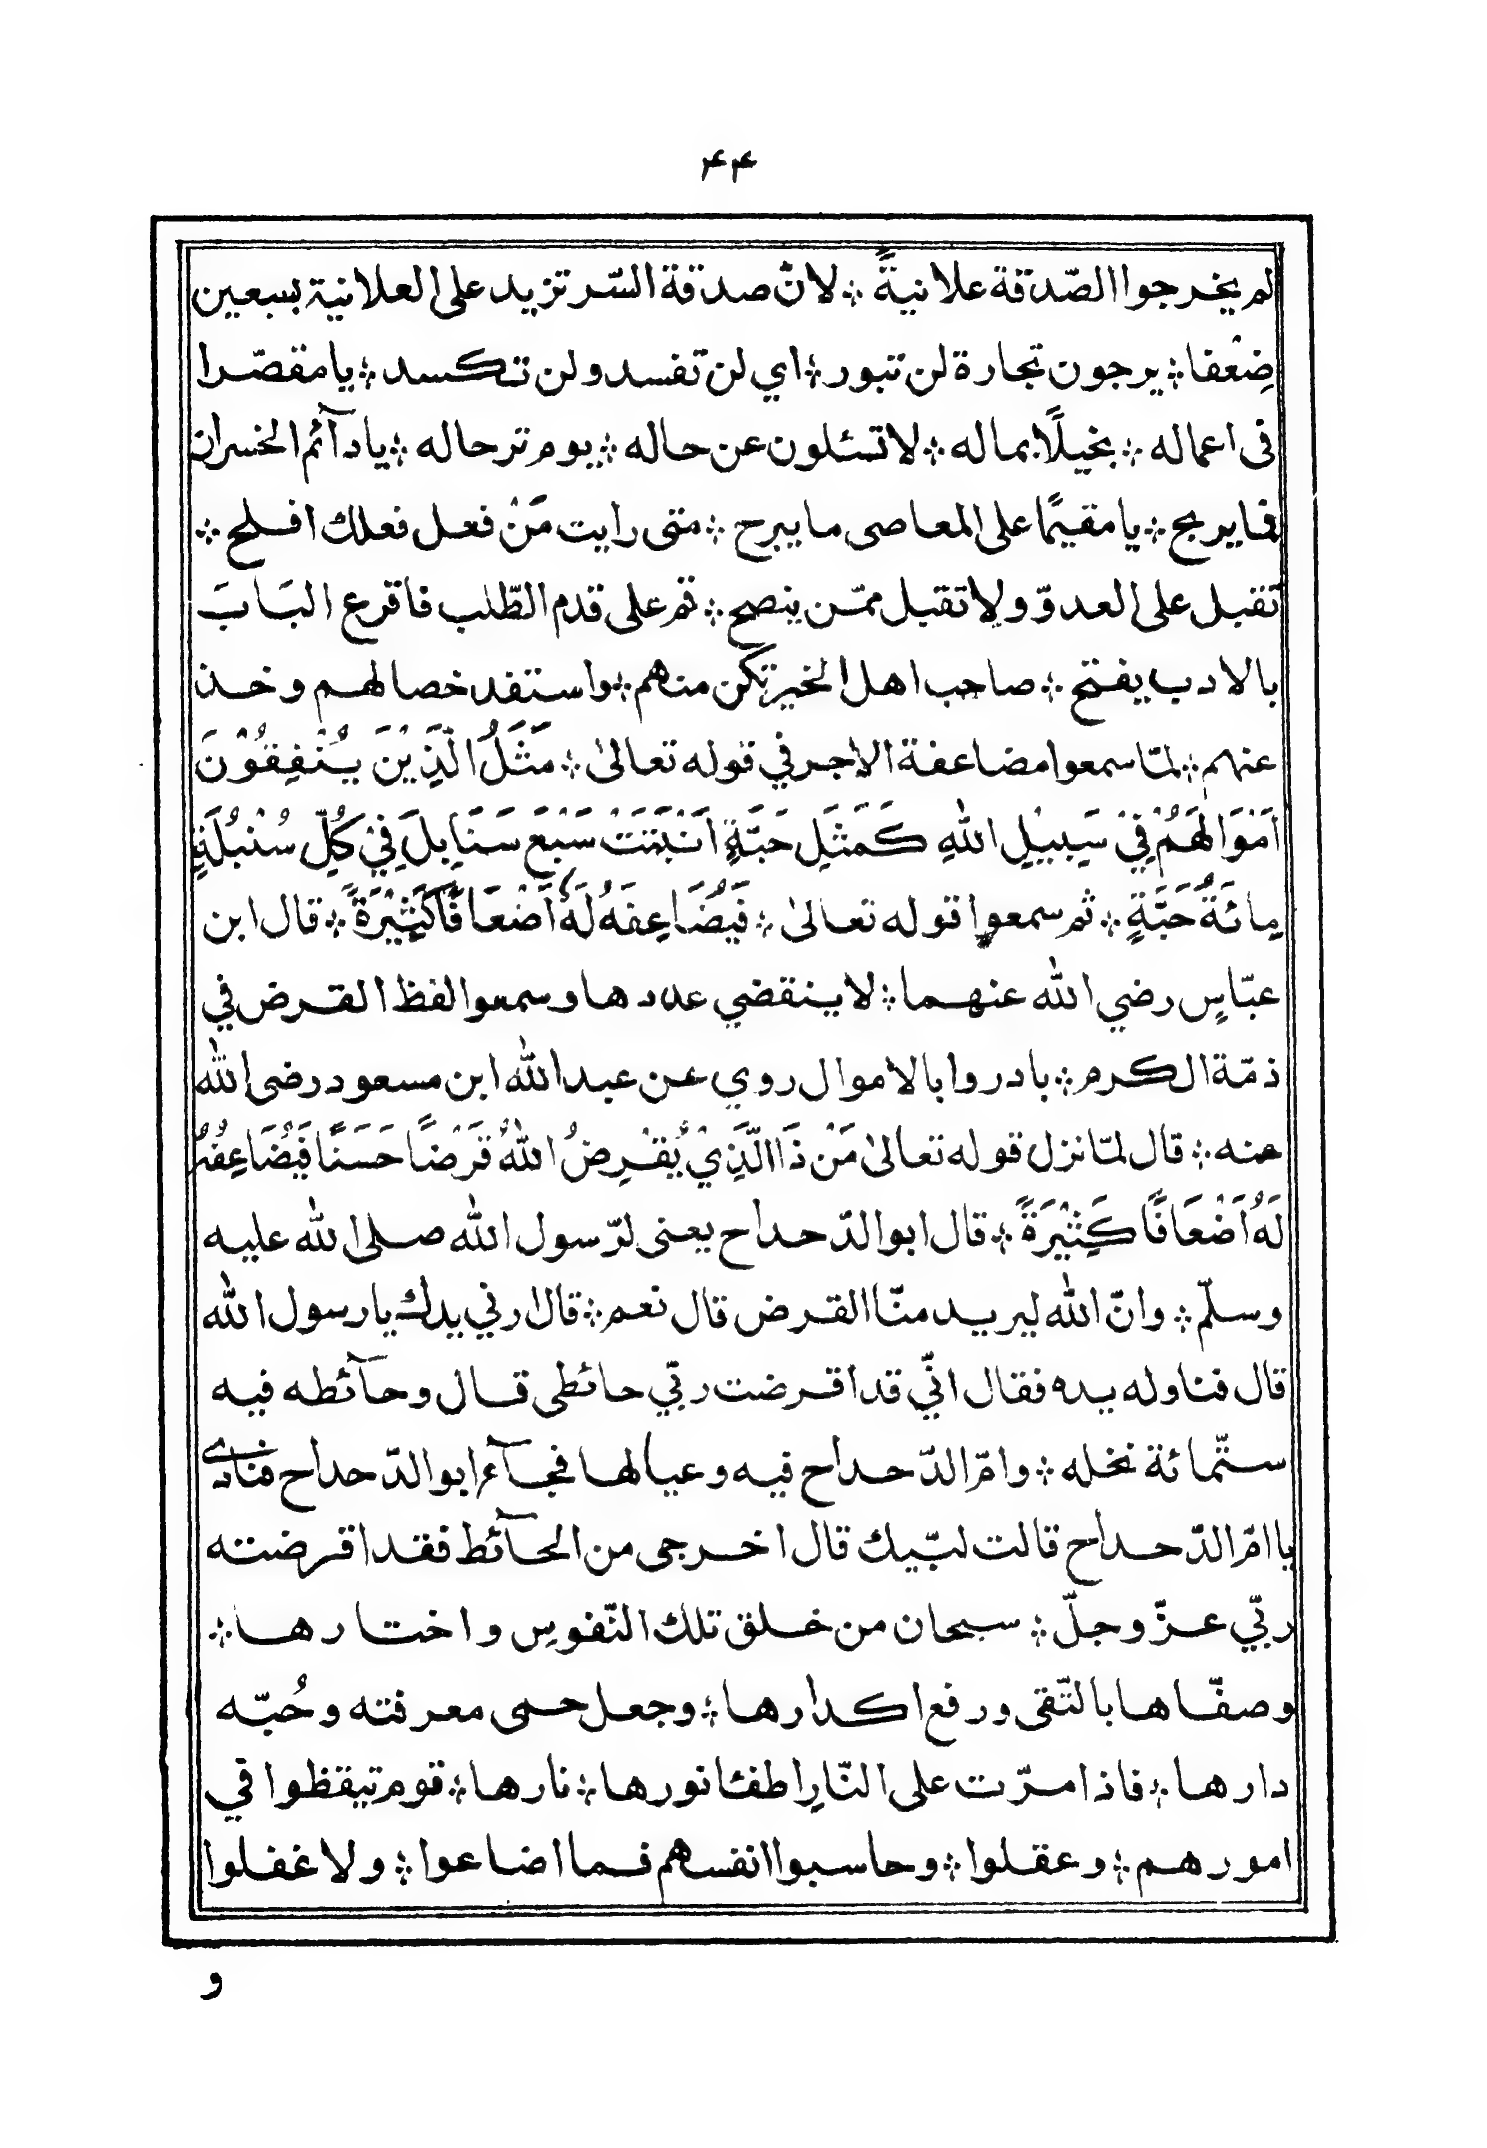 ۴۴
لم يخرجوا الصّدقة علانيةً ؞ لانّ صدقة السّر تزيد على العلانية بسبعين
ضِعْفا ؞ يرجون تجارة لن تبور ؞ اي لن تفسد ولن تكسد ؞ يا مقصّرا
فى اعماله ؞ بخيلًا بماله ؞ لا تسئلون عن حاله ؞ يوم ترحاله ؞ يا دآئم الخسران
فما يربح ؞ يا مقيمًا على المعاصى ما يبرح ؞ متى رايت مَنْ فعل فعلك افلح ؞
تقبل على العدوّ ولا تقبل ممّن ينصح ؞ قم على قدم الطّلب فاقرع البَابَ
بالادب يفتح ؞ صاحب اهل الخير تكن منهم ؞ واستفد خصالهم وخذ
عنهم ؞ لمّا سمعوا مضاعفة الاجر في قوله تعالىٰ ؞ مَثَلُ الَّذِيْنَ يُنْفِقُوْنَ
اَمْوَالَهُمْ فِيْ سَبِيْلِ اللّٰهِ كَمَثَلِ حَبَّةٍ اَنْبَتَتْ سَبْعَ سَنَابِلَ فِيْ كُلِّ سُنْبُلَةٍ
مِائَةُ حَبَّةٍ ؞ ثم سمعوا قوله تعالىٰ ؞ فَيُضَاعِفَهُ لَهٗ اَضْعَافًا كَثِيْرَةً ؞ قال ابن
عبّاسٍ رضي اللّٰه عنهما ؞ لا ينقضي عددها وسمعوا لفظ القرض في
ذمّة الكرم ؞ بادروا بالاموال روي عن عبد اللّٰه ابن مسعود رضى اللّٰه
عنه ؞ قال لمّا نزل قوله تعالىٰ مَنْ ذَا الَّذِيْ يُقْرِضُ اللّٰهُ قَرْضًا حَسَنًا فَيُضَاعِفُهُ
لَهُ اَضْعَافًا كَثِيْرَةً ؞ قال ابو الدّحداح يعنى لرّسول اللّٰه صلى اللّٰه عليه
وسلّم ؞ وانّ اللّٰه ليريد منّا القرض قال نعم ؞ قال ارني يدك يا رسول اللّٰه
قال فناوله يده فقال انّي قد اقرضت ربّي حائطى قال وحآئطه فيه
ستّمائة نخله ؞ وامّ الدّحداح فيه وعيالها فجآء ابو الدّحداح فنادى
يا امّ الدّحداح قالت لبّيك قال اخرجى من الحآئط فقد اقرضته
ربّي عزّ وجلّ ؞ سبحان من خلق تلك النّفوس واختارها ؞
وصفّاها بالتّقى ورفع اكدارها ؞ وجعل حمى معرفته وحُبّه
دارها ؞ فاذا مرّت على النّار اطفئا نورها ؞ نارها ؞ قوم تيقظوا في
امورهم ؞ وعقلوا ؞ وحاسبوا انفسهم فما اضاعوا ؞ ولا غفلوا
و